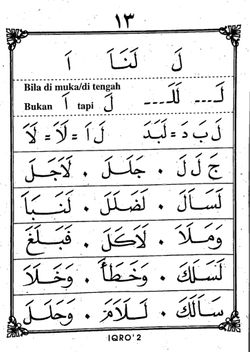 ١٣
لَ لَنَا اَ
Bila di muka/di tengah
Bukan اَ tapi لَ
لَـــ ـــلَلَـــ
لَ بَ دَ = لَبَدَ لَ اَ = لَا = لَا
جَ لَ لَ . جَلَلَ . لَاَجَلَ
لَسَاَلَ . لَضَلَلَ . لَنَبَاَ
وَمَلَاَ . لَاَكَلَ . فَبَلَغَ
لَسَلَكَ . وَخَطَاَ . وَخَلَاَ
سَاَلَكَ . لَلَاَمَ . وَحَلَلَ
IQRO' 2